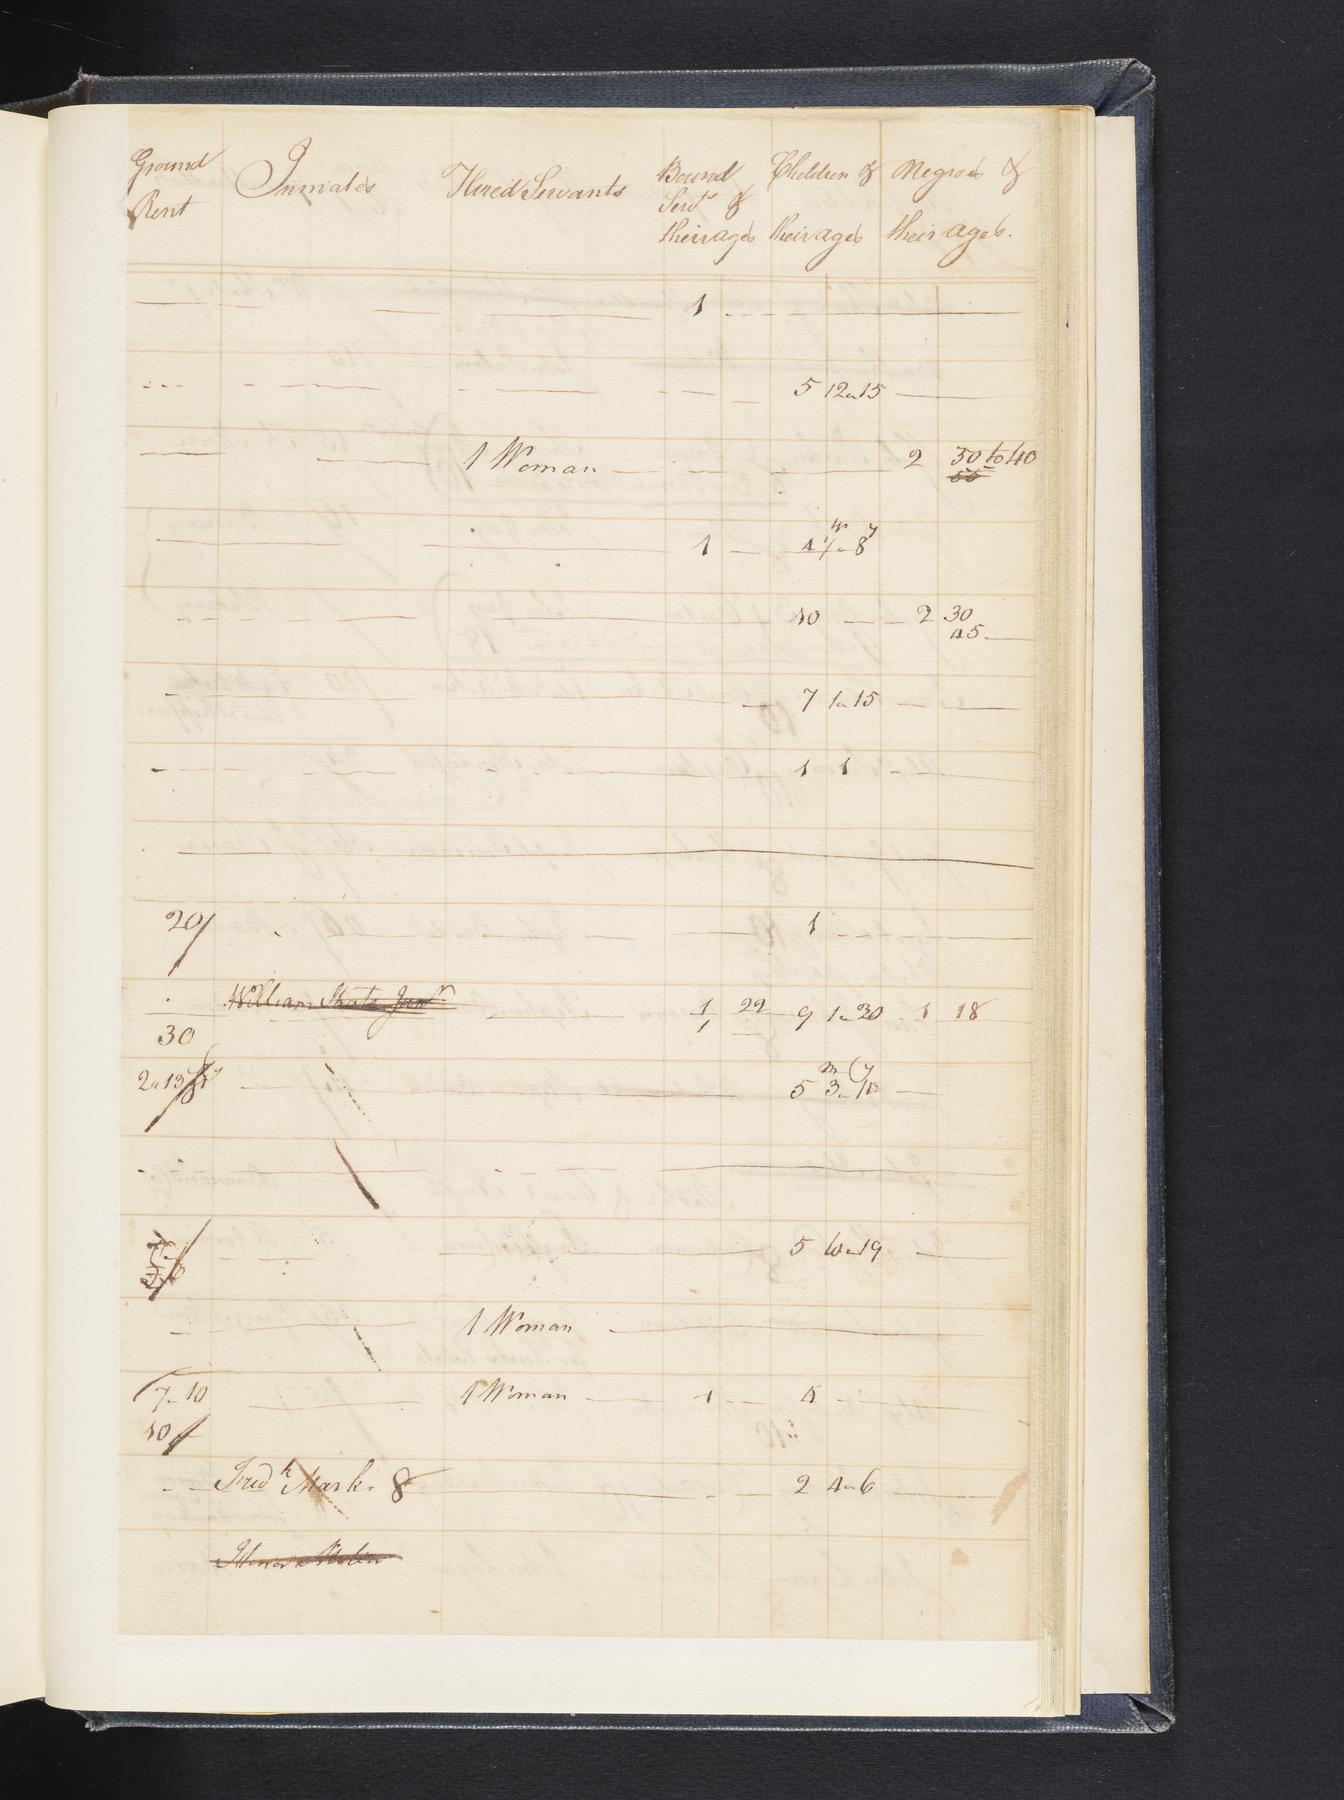 Ground Rent
Inmates
Hired Servants
Bound Servts & their ages
Children & their ages
Negroes & their ages.
1
5 12 a 15
1 Woman 2 30 to 40
1 4 8
10 2 30
45
7 1 a 15
1 1
20/ 1
William Shute Junr 1 22 9 1 a 20 1 18
1
30
2 a 13 5 3 a 10
5 10 a 19
1 Woman
7 10 1 Woman 1 4
10
Fredh Mark. 8 2 4 a 6